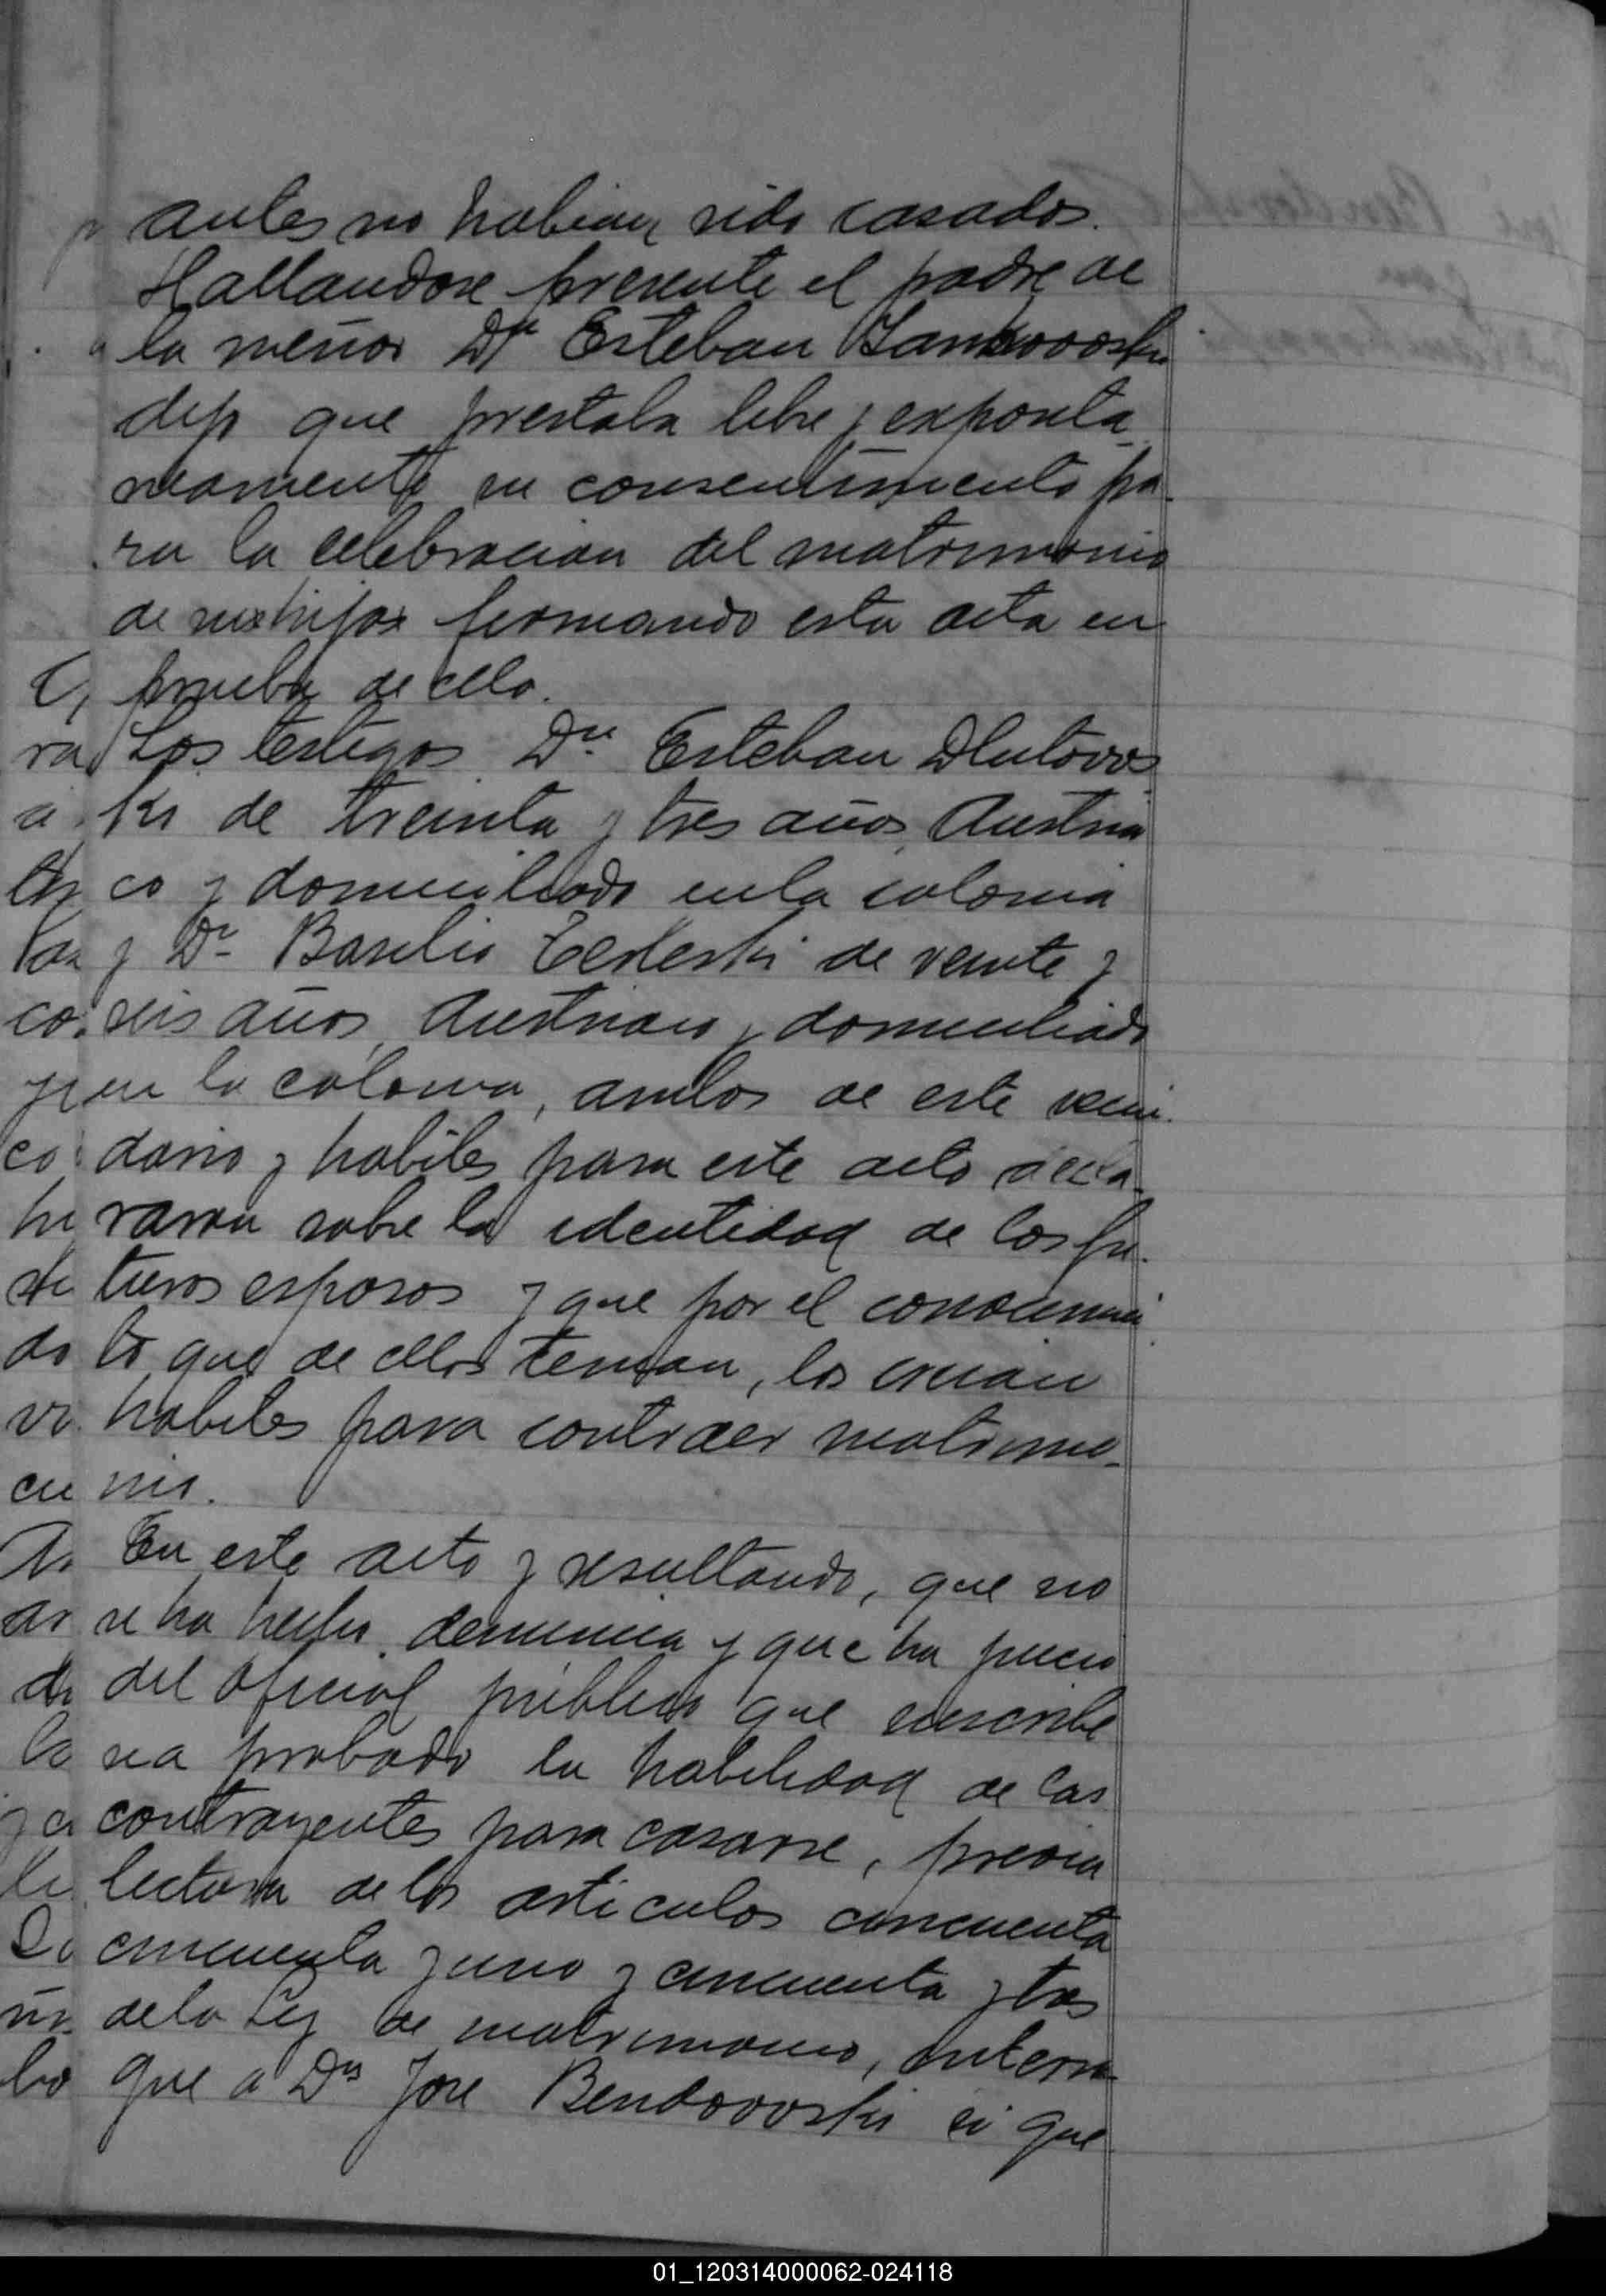 antes no habian sido casados.
Hallandose presente el padre de
la menor Dn Esteban Jankovoski
dijo que prestaba libre y exponta
neamente su consentimiento pa-
ra la celebracion del matrimonio
de sus hijos firmando esta acta en
prueba de ello.
Los testigos Dn Esteban Dlutovos
ki de treinta y tres años, Austria
co y domiciliado en la colonia
y Dn Basilio de veinte y
seis años Austriaco y domiciliado
en la colonia, ambos de este vecin
dario y habiles para este acto decla-
raron sobre la identidad de los fu-
turos esposos y que por el conocimien
to que de ellos tenian, los creian
habiles para contraer matrimo-
nio.
En este acto y resultando, que no
se ha hecho denuncia y que ha juicio
del oficial publico que suscribe
sea probado la habilidad de los
contrayentes para casarse, previa
lectura de los articulos cincuenta
cincuenta y uno y cincuenta y tres
de la Ley de matrimonio, interro-
gue a Dn Jose Bendovoski si que
01_120314000062-024118